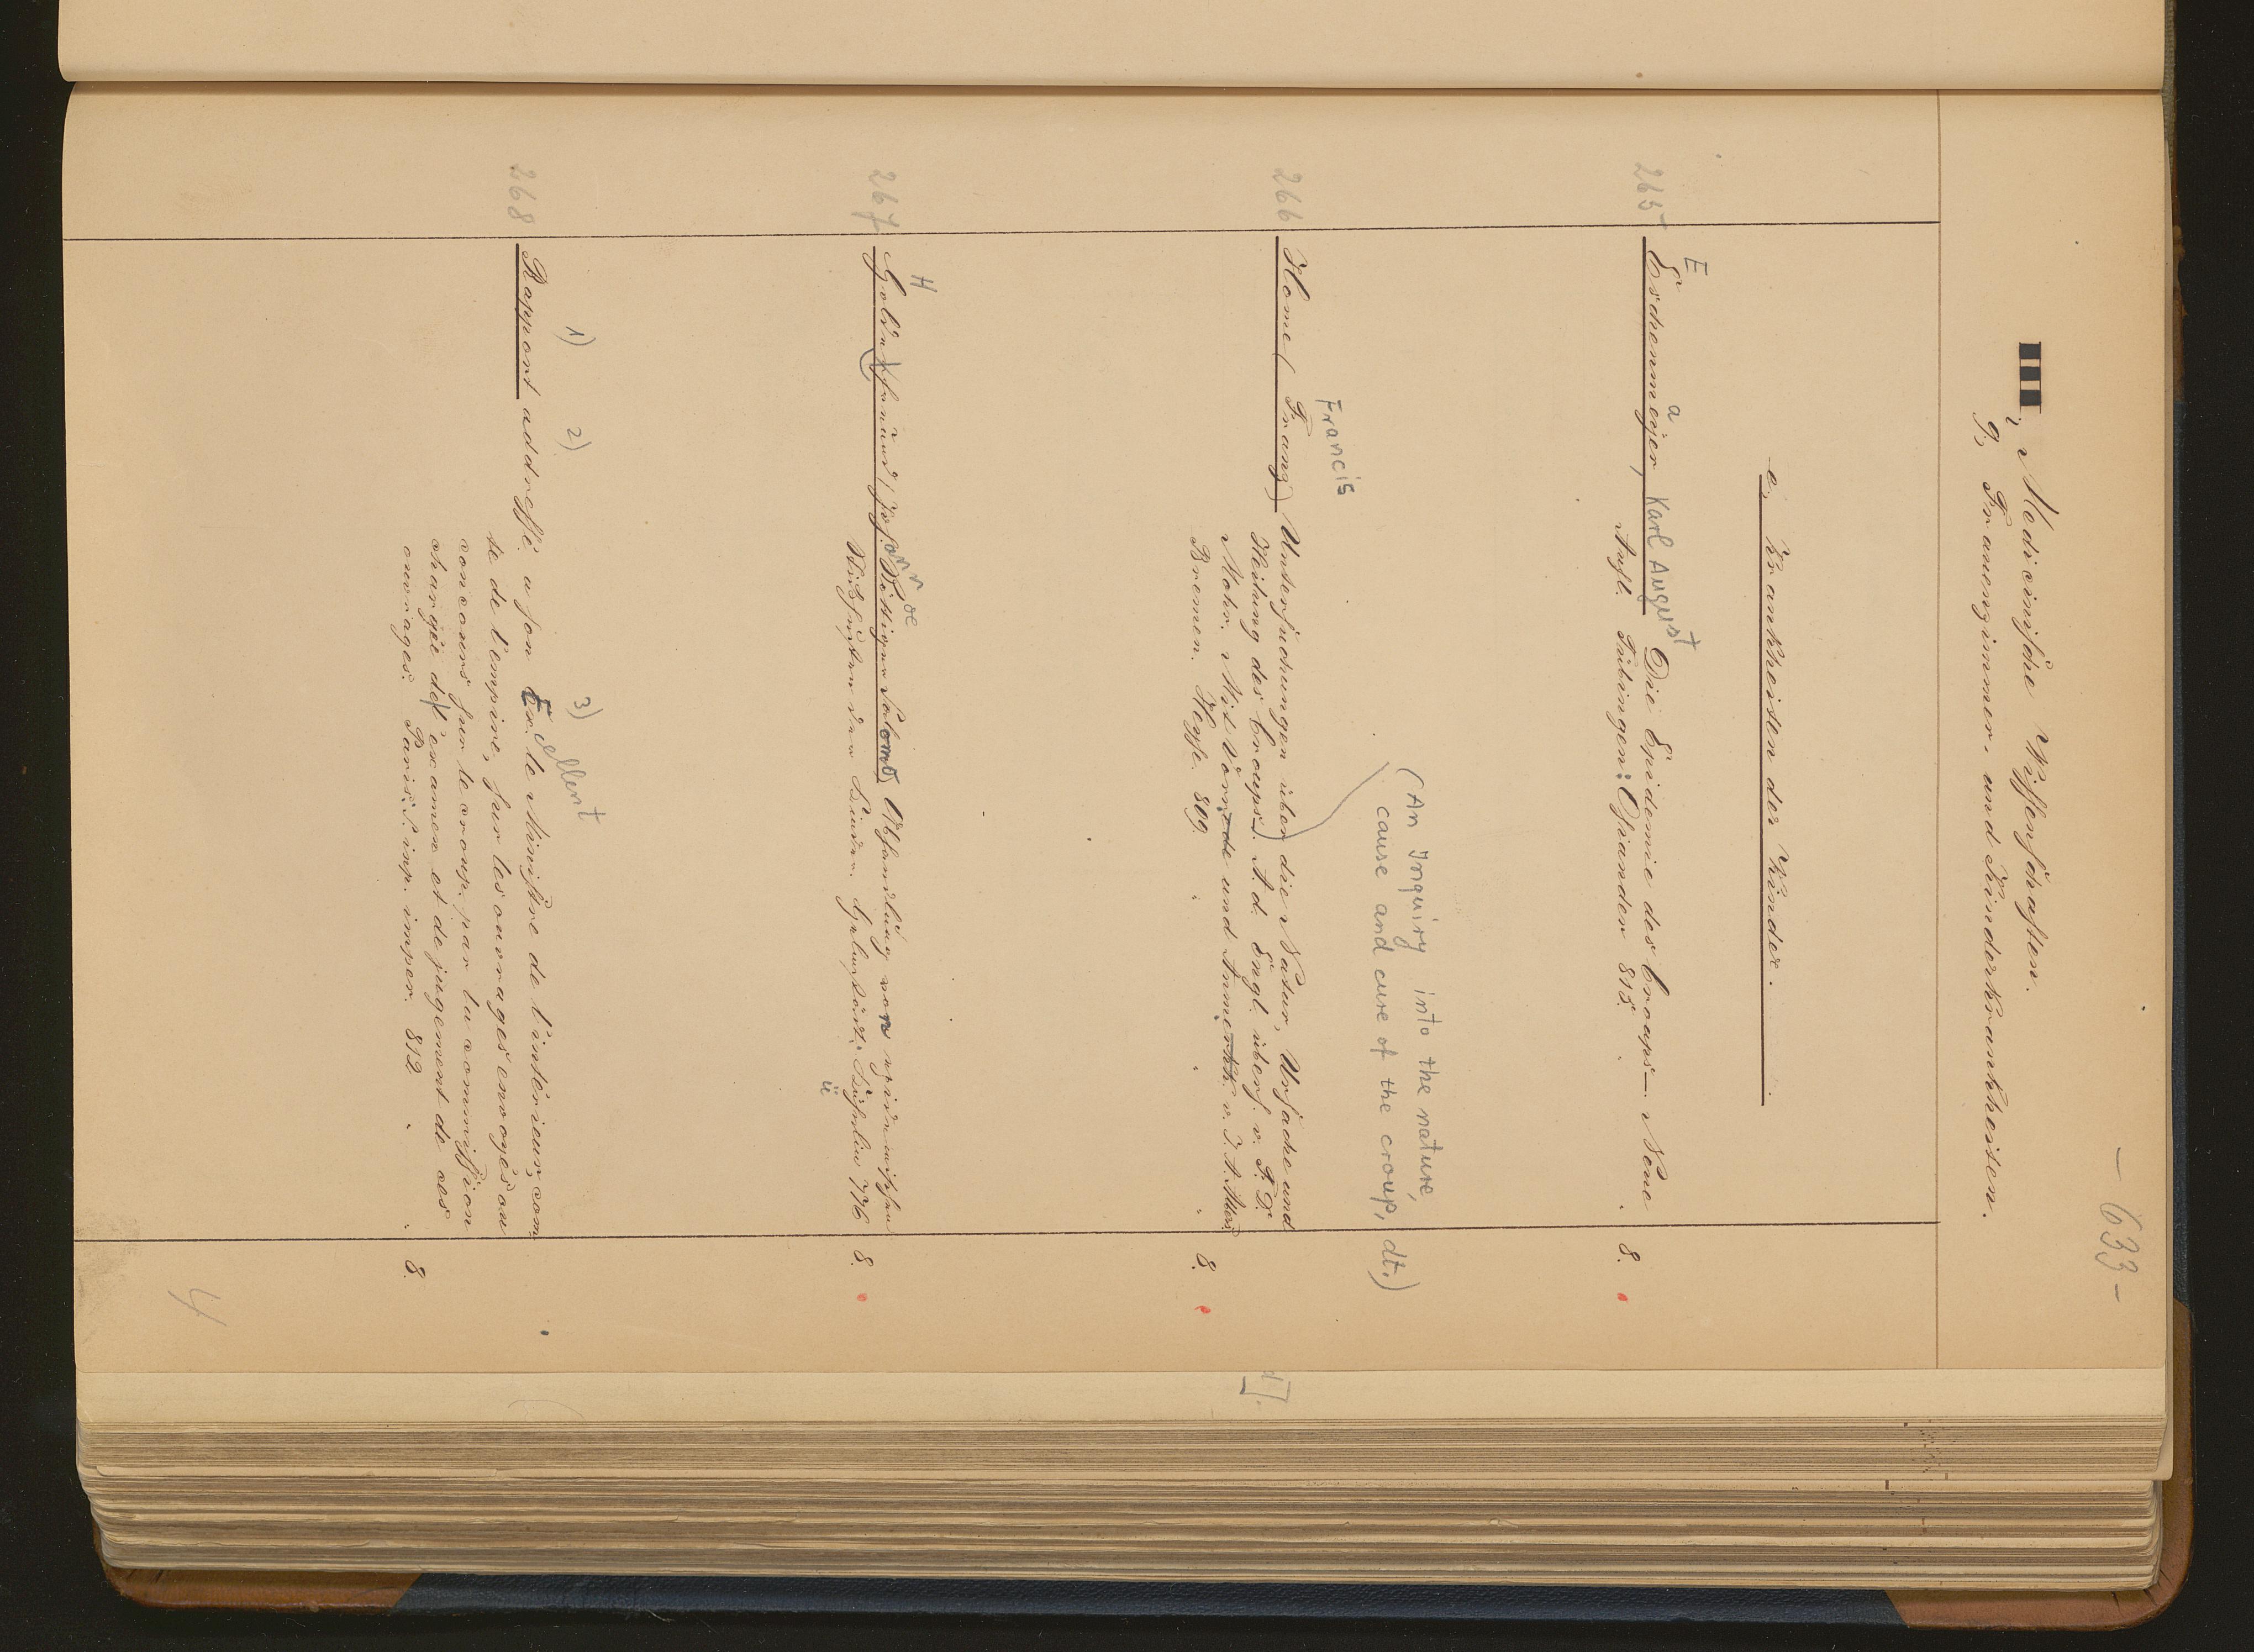 - 633 -
III, Medicinische Wissenschaften.
g, Frauenzimmer- und Kinderkrankheiten.
e, Krankheiten der Kinder.
E a
265 Eschenmejer, Karl August Die Epidemie des Croups — Neue
Aufl. Tübingen: Osiander 815. 8.
(An Inquiry into the nature,
cause and cure of the croup, dt.)
Francis
266 Home (Franz) Untersuchungen über die Natur, Ursache und
Heilung des Croups). A d. Engl. übers. v. F. D.
Mohr. Mit Vorrede und Anmerkk. v. J. A.
Bremen. Heyse. 809. 8.
H oe
267 Goldhammer, Joh. Abhandlung von epidemischen
der Kinder. ü 776 8.
1) 2) 3)
268 Rapport addressé a son Exellent le Ministre de l'intérieur, com-
te de l'empire, sur les ouvrages envoyés au
concours sur le croup. par la commission
chargée de l'examen et de jugement de ces
ouvrages. Paris: imp. imper. 812 8.
4